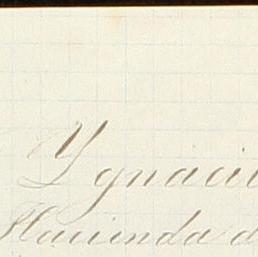 Ygnacio
Hacienda d